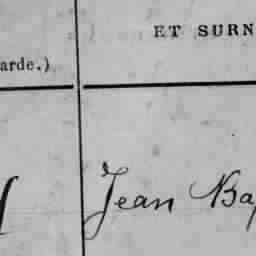 ET SURN
arde.)
Jean Bap